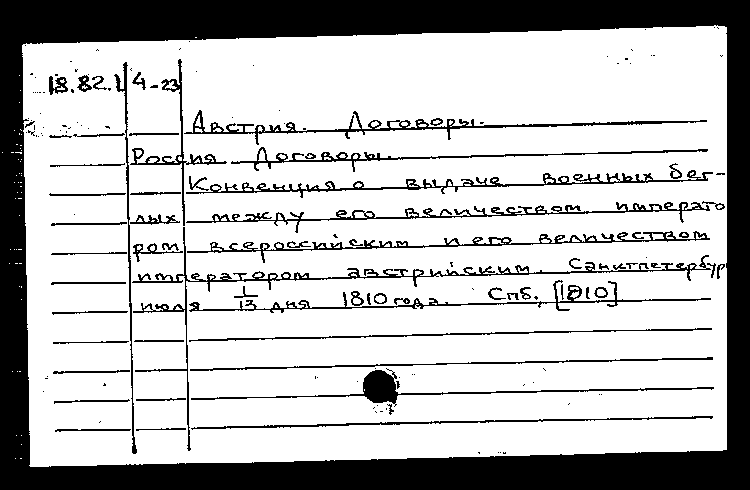 18.82.1 4-23
Австрия. Договоры.
Россия. Договоры.
Конвенция о выдаче военных бег-
лых между его величеством императо
ром всероссийским и его величеством
императором австрийским. Санктпетербур
июля 1/13 дня 1810 года. Спб., [1810]